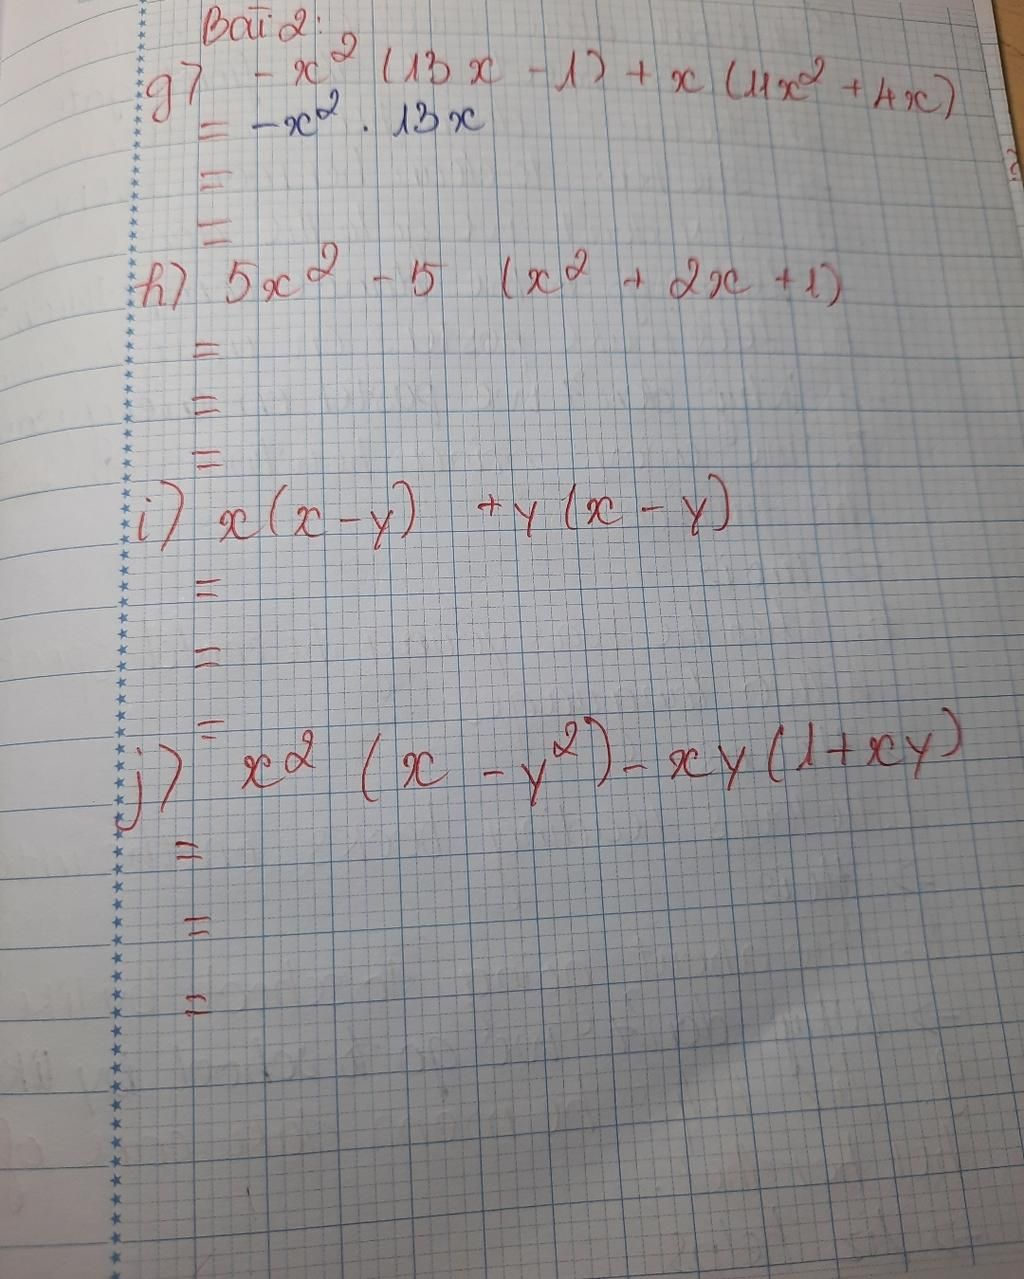 Bài 2:
g) - x² (13x - 1) + x (11x² + 4x)
= -x² . 13x
=
=
h) 5x² - 5 (x² + 2x + 1)
=
=
=
i) x(x - y) + y (x - y)
=
=
=
j) x² (x - y²) - xy (1 + xy)
=
=
=